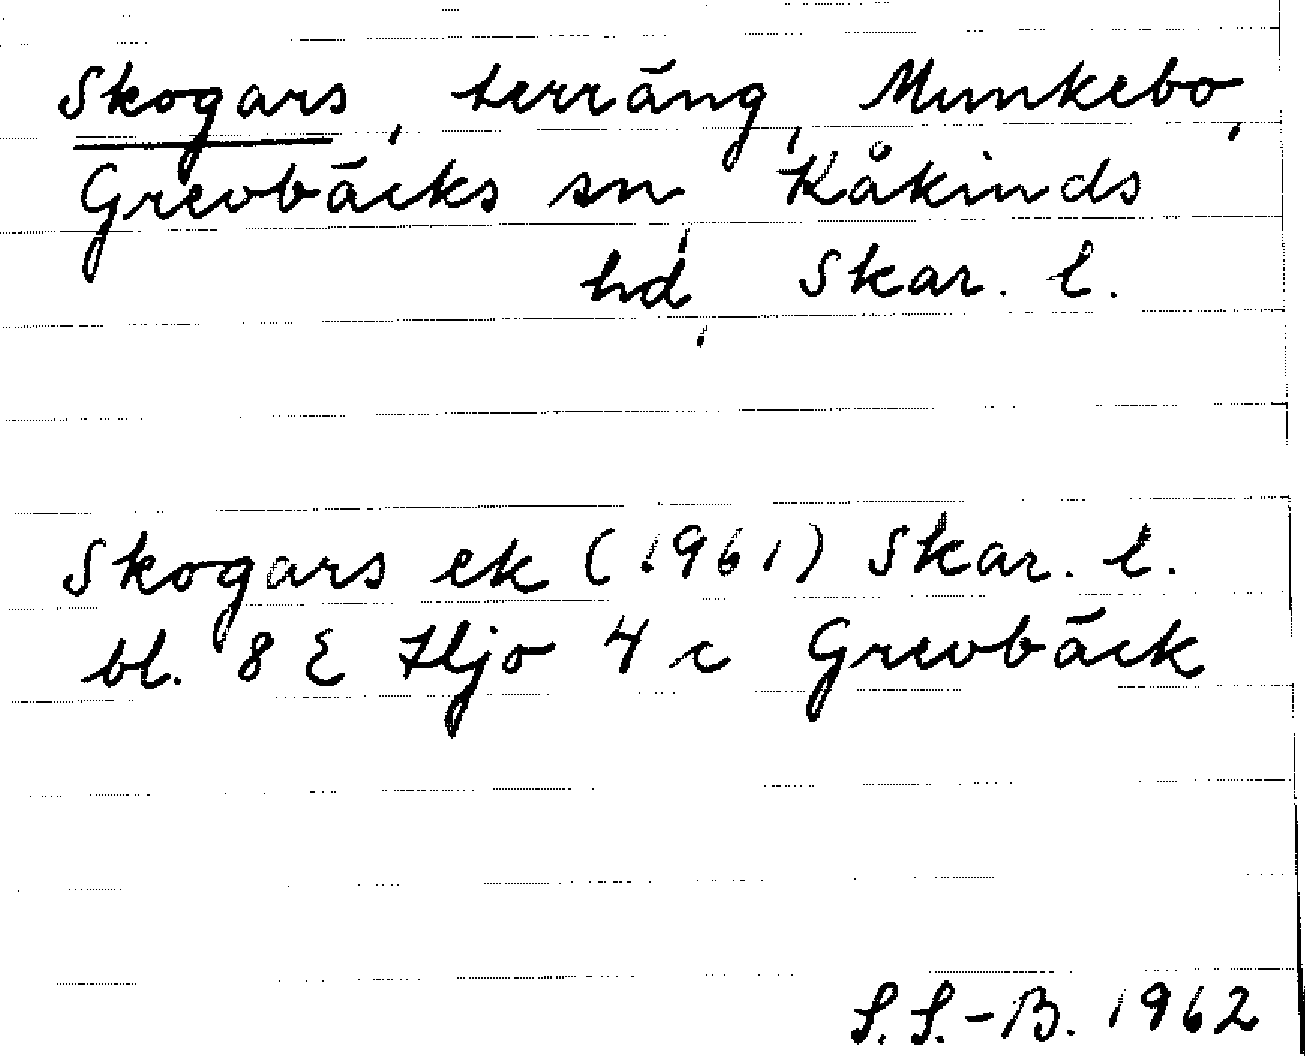 Skogars, terräng, Munkebo,
Grevbäcks sn, Kåkinds
hd, Skar. l.
Skogars ek (1961) Skar. l.
bl. 8 E Hjo 4 c Grevbäck
S. S.-B. 1962